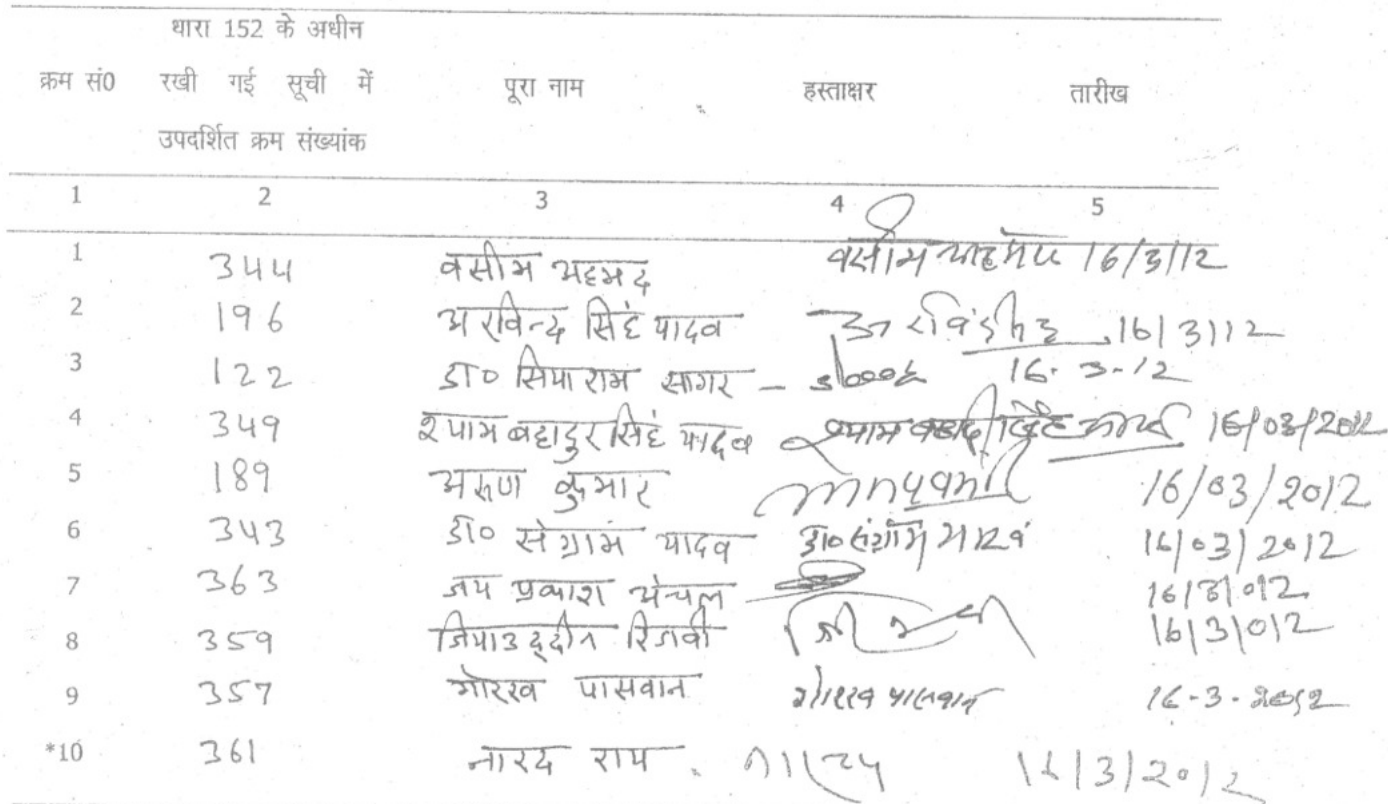 धारा 152 के अधीन
क्रम सं0 रखी गई सूची में पूरा नाम हस्ताक्षर तारीख
उपदर्शित क्रम संख्यांक
1 2 3 4 5
1 344 वसीम अहमद वसीम अहमद 16/3/12
2 196 अरविन्द सिंह यादव 16/3/12
3 122 डा० सियाराम सागर - 16-3-12
4 349 श्याम बहादुर सिंह यादव 16/03/2012
5 189 अरूण कुमार 16/03/2012
6 343 डा० संग्राम यादव डा० संग्राम यादव 16/03/2012
7 363 जय प्रकाश अंचल 16/3/012
8 359 जियाउद्दीन रिजवी 16/3/012
9 357 गोरख पासवान गोरख पासवान 16-3-2012
*10 361 नारद राय 16/3/2012